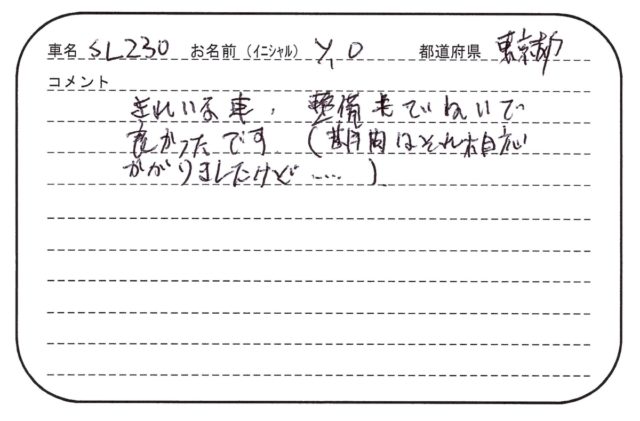 車名 SL230 お名前(イニシャル) Y, O 都道府県 東京都
コメント
きれいな車、整備もていねいで
良かったです (期間はそれ相応
かかりましたけど……)